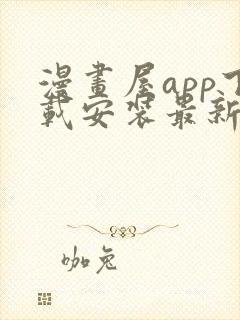 漫畫屋app下
載安裝最新
咖兔